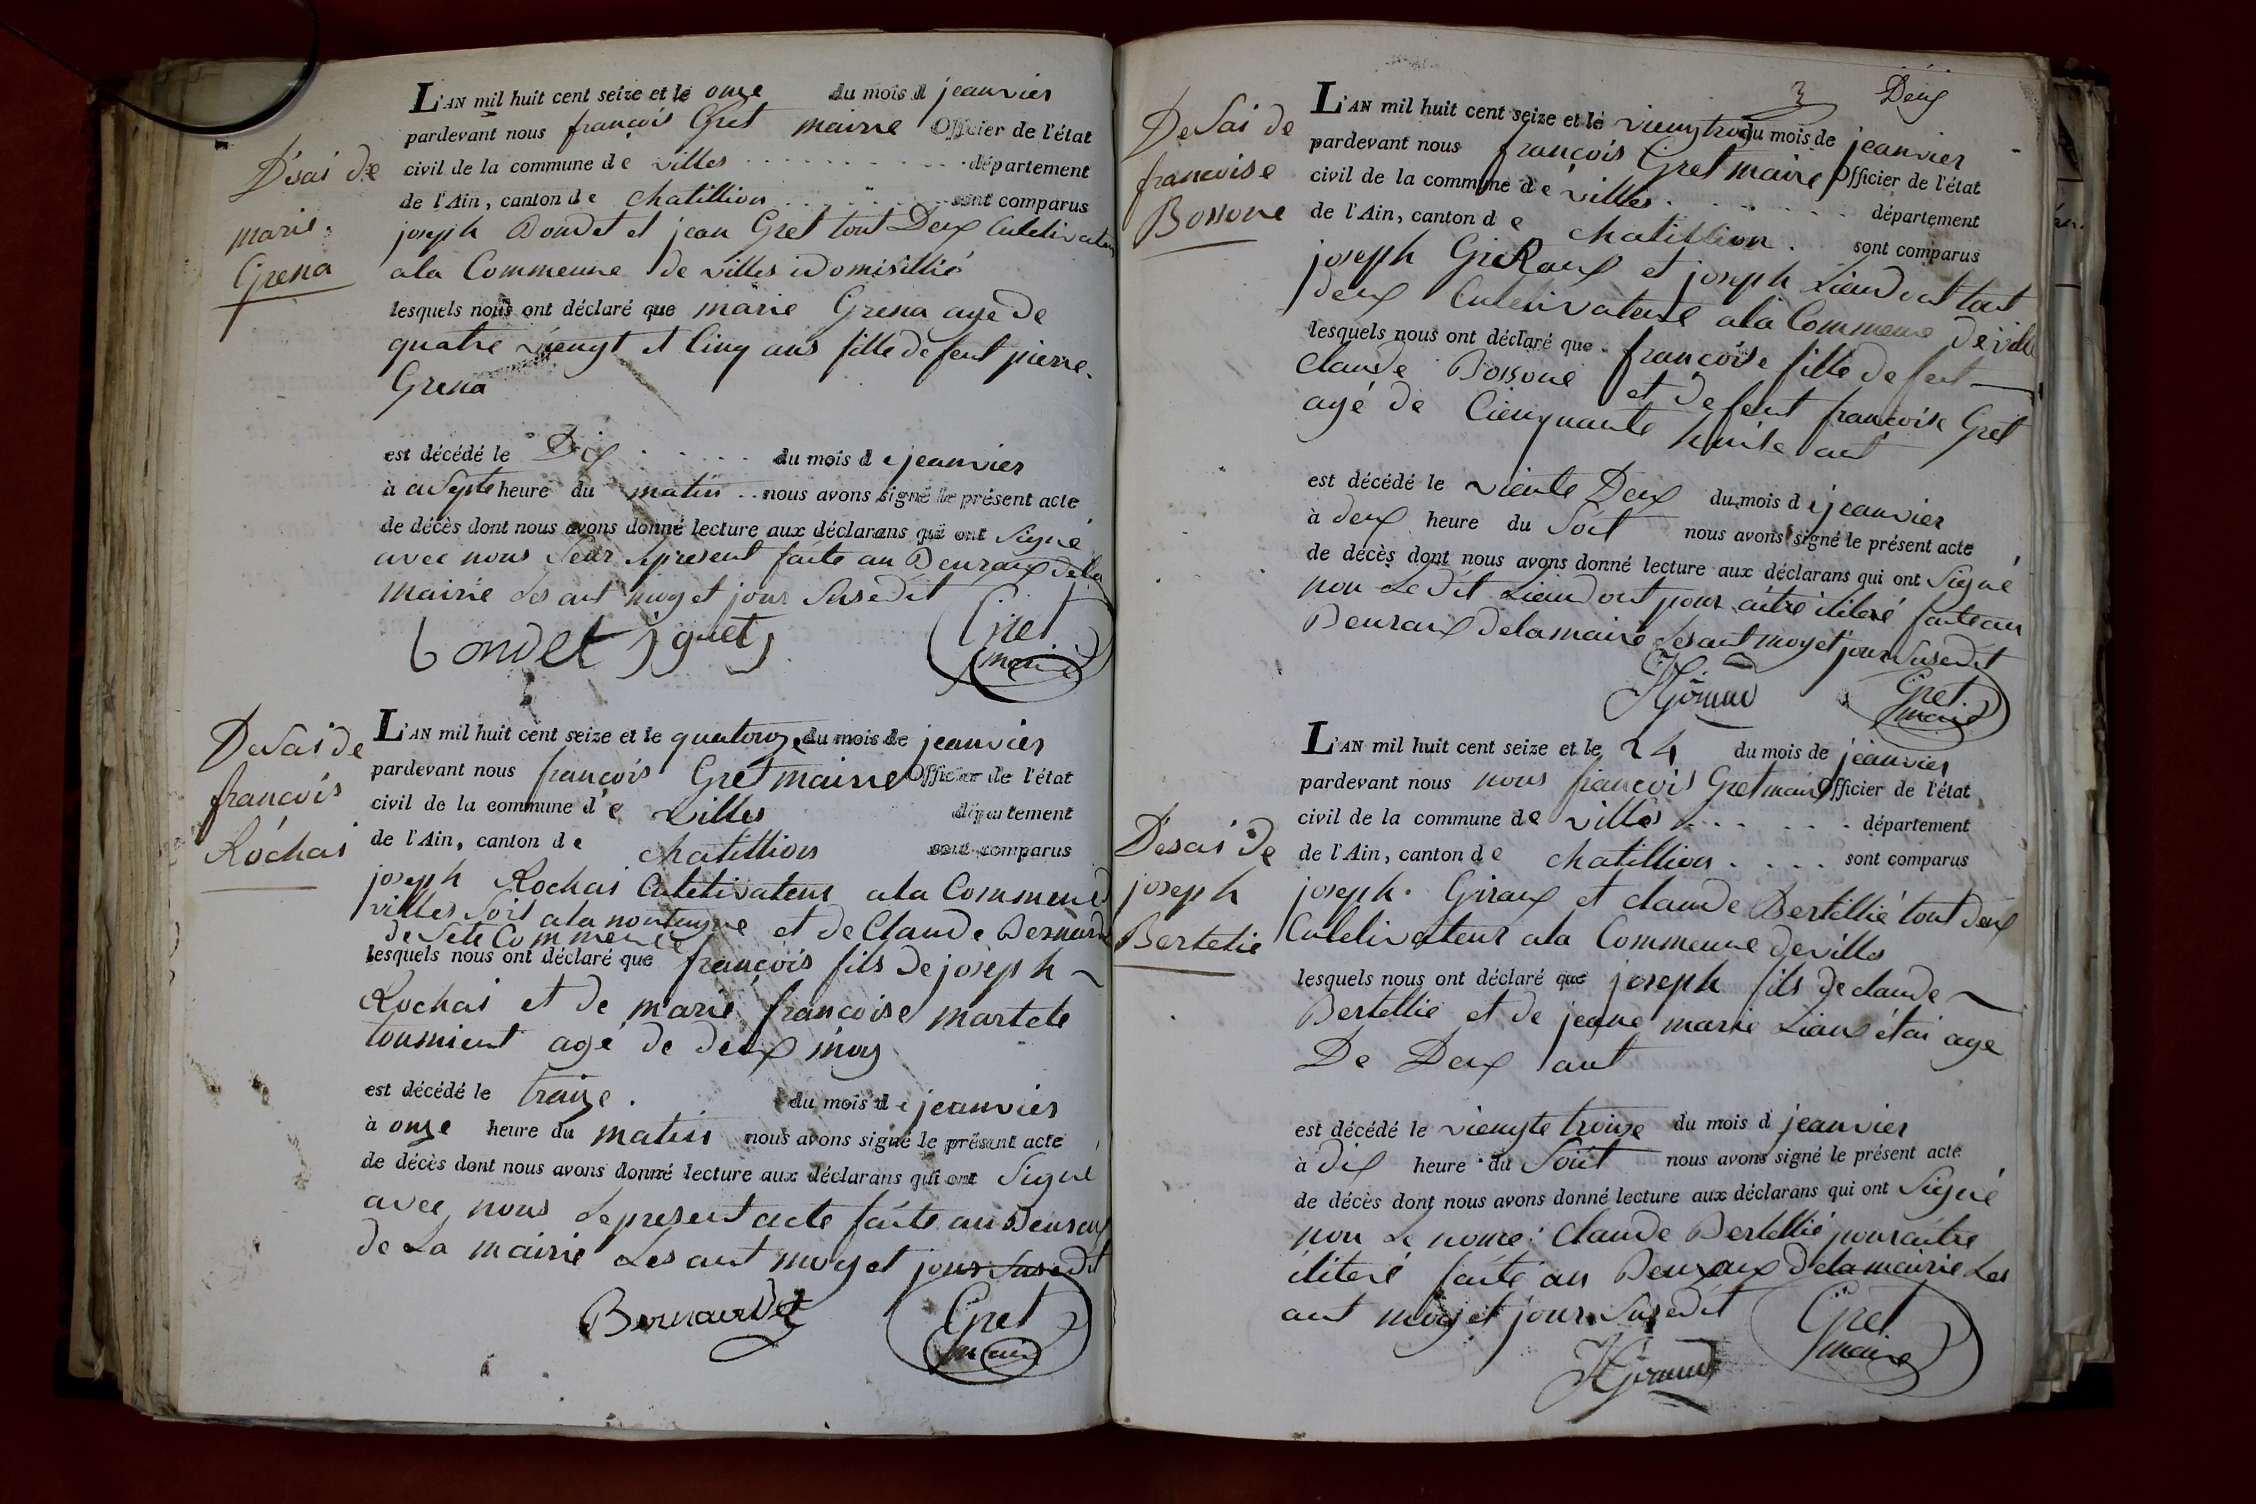 L'AN mil huit cent seize et le onze du mois d jeanvier
pardevant nous françois Gret mairre Officier de l'état
civil de la commune de villes département
de l'Ain, canton de chatillion sont comparus
joseph Bondet et jean Gret tout Deux Culetivateur
ala Commeune de villes idomisillié
lesquels nous ont déclaré que marie Grena age de
quatre viengt et Cinq ans fille de feut pierre
Grena
est décédé le Dix du mois de jeanvier
à a septe heure du matin nous avons signé le présent acte
de décès dont nous avons donné lecture aux déclarans qui ont Signé
avec nous Seur le present faite au Beuraux dela
mairie Les ant moy et jour Susedit
Bondet j gret
Gret
maire
Désai de
marie
Grena
L'AN mil huit cent seize et le quatorze du mois de jeanvier
pardevant nous françois Gret mairre Officier de l'état
civil de la commune de villes département
de l'Ain, canton de chatillion sont comparus
joseph Rochai Culetivateur ala Commene d
villes Soit ala montagne et de Claude Bernard
de Sete Commeune
lesquels nous ont déclaré que françois fils de joseph
Rochai et de marie françoise martete
tournient agé de deux moy
est décédé le traize du mois de jeanvier
à onze heure du matin nous avons signé le présent acte
de décès dont nous avons donné lecture aux déclarans qui ont Signé
avec nous Le present acte faite au Beuraux
de La mairie Les ant moy et jour Susedit
Bernardet
Gret
maire
Desai de
françois
Rochai
3 Deux
L'AN mil huit cent seize et le viengtroi du mois de jeanvier
pardevant nous françois Gret maire Officier de l'état
civil de la commune de villes département
de l'Ain, canton de chatillion sont comparus
joseph GiRaux et joseph Liaudout tout
deux Culetivateure ala Commeune de ville
lesquels nous ont déclaré que françoise fille de feut
claude Bossone et de feut françoise Gret
agé de Cienquante huite ant
est décédé le viente Deux du mois de jeanvier
à deux heure du Soit nous avons signé le présent acte
de décès dont nous avons donné lecture aux déclarans qui ont Signé
non Le Dit Liaudout pour aitre ilitere faite au
Beuraux dela mairie Les ant moy et jour Susedit
JGiraud
Gret
maire
De Sai de
francoise
Bossone
L'AN mil huit cent seize et le 24 du mois de jeanvier
pardevant nous nous françois Gret maire Officier de l'état
civil de la commune de villes département
de l'Ain, canton de chatillion sont comparus
joseph Giraux et claude Bertellié tout deux
Culetivateur ala Commeune de villes
lesquels nous ont déclaré que joseph fils de claude
Bertellie et de jeane marie Liaux étai age
De Deux ant
est décédé le viengte troize du mois d jeanvier
à dix heure du Soit nous avons signé le présent acte
de décès dont nous avons donné lecture aux déclarans qui ont Signé
non Le nome claude Bertellié pour aitre
iliteré faite au Beuraux dela mairie Les
ant moy et jour Susedit
JGiraud
Gret
maire
Desai de
joseph
Bertelie